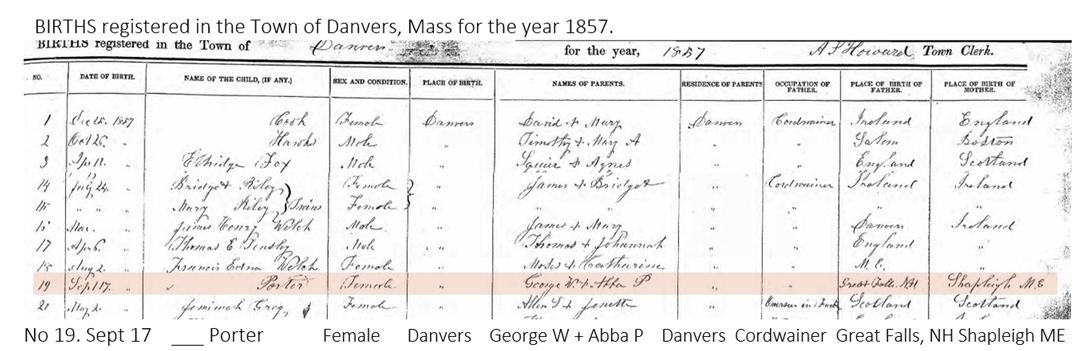 BIRTHS registered in the Town of Danvers, Mass for the year 1857.
BIRTHS registered in the Town of Danvers for the year, 1857 A S Howard Town Clerk.
NO. DATE OF BIRTH. NAME OF THE CHILD, (IF ANY.) SEX AND CONDITION. PLACE OF BIRTH. NAMES OF PARENTS. RESIDENCE OF PARENTS OCCUPATION OF FATHER. PLACE OF BIRTH OF FATHER. PLACE OF BIRTH OF MOTHER.
1 Dec 25. 1857 Cook Female Danvers David + Mary Danvers Cordwainer Ireland England
2 Oct 26 " Hawks Male " Timothy + Mary A " " Salem Boston
3 Apr 11 " Ethridge Fox Male " Squier + Agnes " " England Scotland
14 July 24 " Bridget Riley } Female } " James + Bridget " Cordwainer Ireland Ireland
15 " " " Mary Riley } Twins Female } " " " " " "
Mar. " James Henry Welch Male " James + Mary " " Danvers Ireland
17 Apr 6 " Thomas E Male " Thomas + Johannah " " England "
18 Aug 2 " Francis Edna Welch Female " Moses + Catharine " " M.E. "
19 Sept 17. " Porter Female " George W + Abba P " " Great Falls. NH Shapleigh M E
May 2. " Jemimah Female " Allen + " Scotland Scotland
No 19. Sept 17 ___ Porter Female Danvers George W + Abba P Danvers Cordwainer Great Falls, NH Shapleigh ME